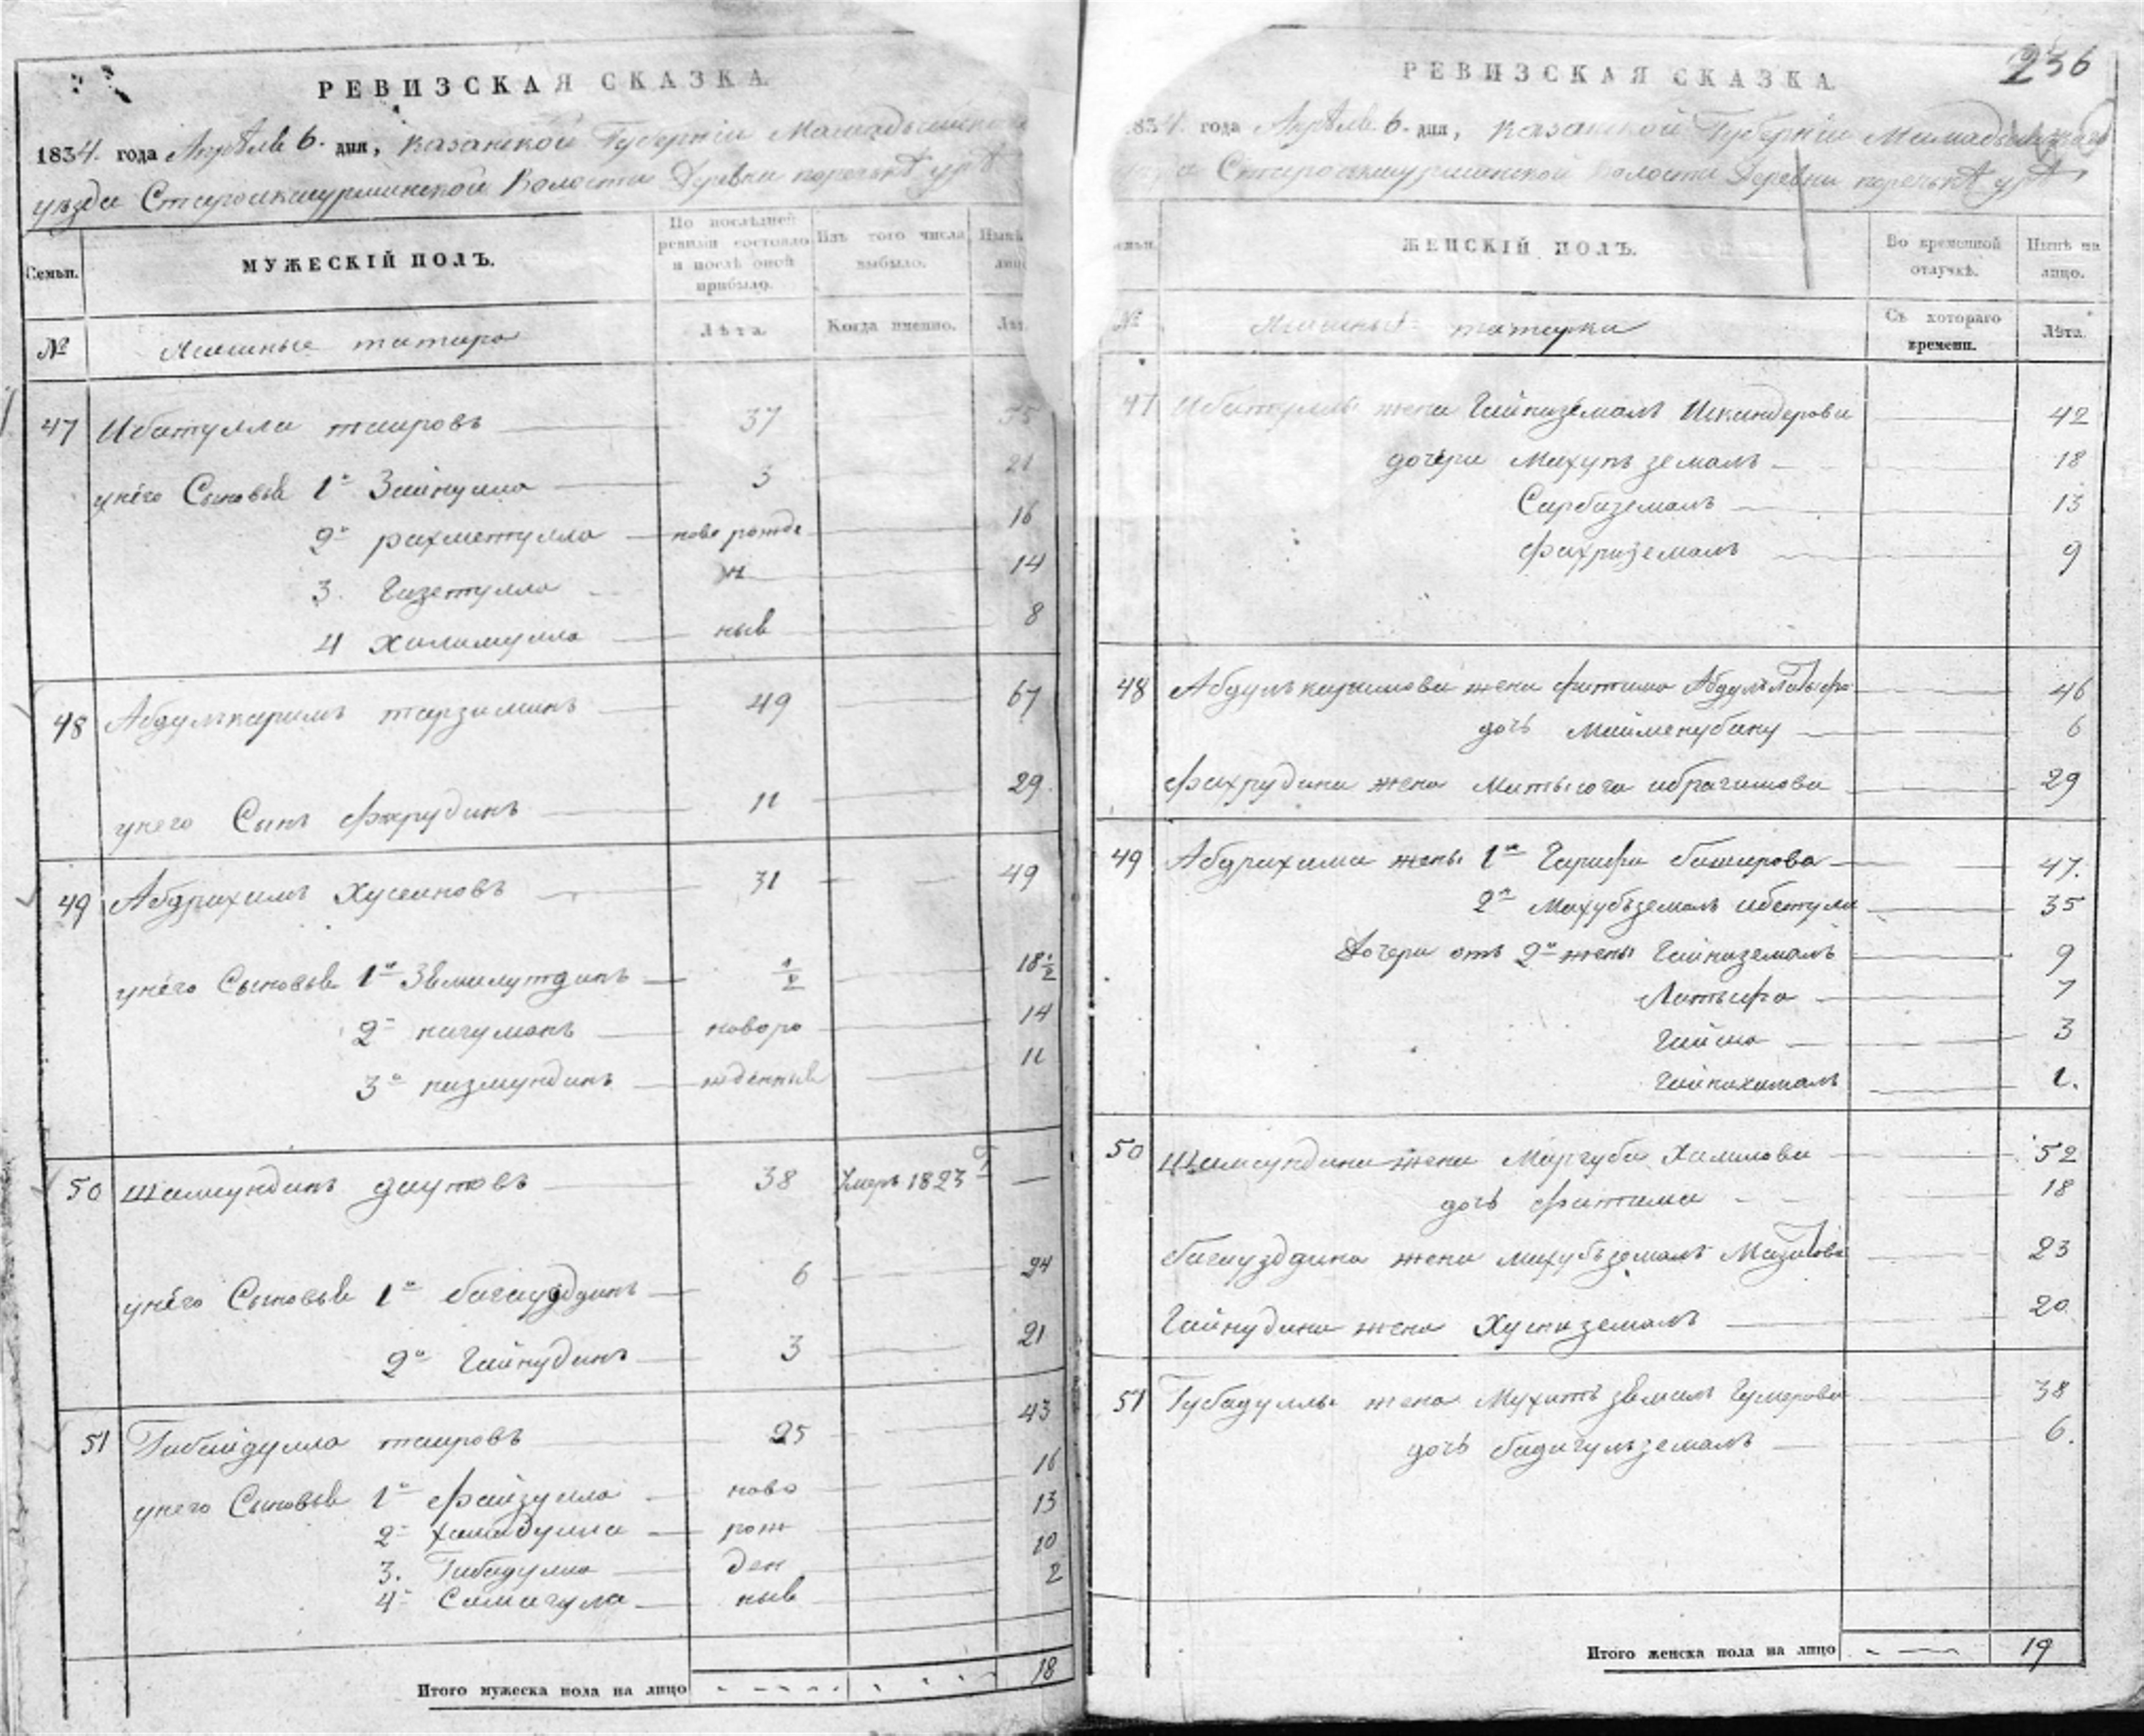 РЕВИЗСКАЯ СКАЗКА.
1834. года Апрѣля 6. дня, Казанской Губернiи Мамадышскаго
уѣзда Староикшурминской Волости Деревни
Семьи.
МУЖЕСКIЙ ПОЛЪ.
По послѣдней ревизiи состояло и послѣ оной прибыло.
Изъ того числа выбыло.
Нынѣ
№
Ясашные татара
Лѣта.
Когда именно.
Лѣт
47 Ибатулла таировъ 37 55
у него Сыновья 1й Зайнулла 3 21
2й рахметулла ново рожде 16
3. Гизетулла н 14
4 Халимулла ныя 8
48 Абдулкаримъ 49 67
у него Сынъ Фахрудинъ 11 29.
49 Абдрахимъ Хусеиновъ 31 49
у него Сыновья 1й 1/2 18 1/2
2й нагуманъ новоро 14
3й низмундинъ жденныя 11
50 Шамсундинъ даутовъ 38 Умеръ 1823 —
у него Сыновья 1й багауддинъ 6 24
2й Гайнудинъ 3 21
51 Губайдулла таировъ 25 43
у него Сыновья 1й Файзулла ново 16
2й рож 13
3. Гибадулла ден 10
4й Самигула ныя 2
Итого мужеска пола на лицо 18
236
РЕВИЗСКАЯ СКАЗКА.
1834. года Апрѣля 6. дня, Казанской Губернiи Мамадышскаго
Староикшурминской Волости Деревни
ЖЕНСКIЙ ПОЛЪ.
Во временной отлучкѣ.
Нынѣ на лицо.
№
Ясашныя татарки
Съ котораго времени.
Лѣта.
47 Ибатуллы жена Гайниземалъ Искандерова 42
дочери Махупъ земалъ 18
Сарбиземалъ 13
Фахриземалъ 9
48 Абдулъкаримова жена Фатима 46
дочь Майменубану 6
Фахрудина жена ибрагимова 29
49 Абдрахима жены 1я Гарифа баширова 47.
2я Махубъземалъ ибетулл 35
Дочери отъ 2й жены Гайниземалъ 9
Латыфа 7
Гайша 3
Гайникамалъ 1.
50 Шамсундина жена Маргуба Халилова 52
дочь Фатима 18
багауддина жена махубъземалъ 23
Гайнудина жена Хусниземалъ 20
51 Губадуллы жена Гумерова 38
дочь бадигулъземалъ 6.
Итого женска пола на лицо 19